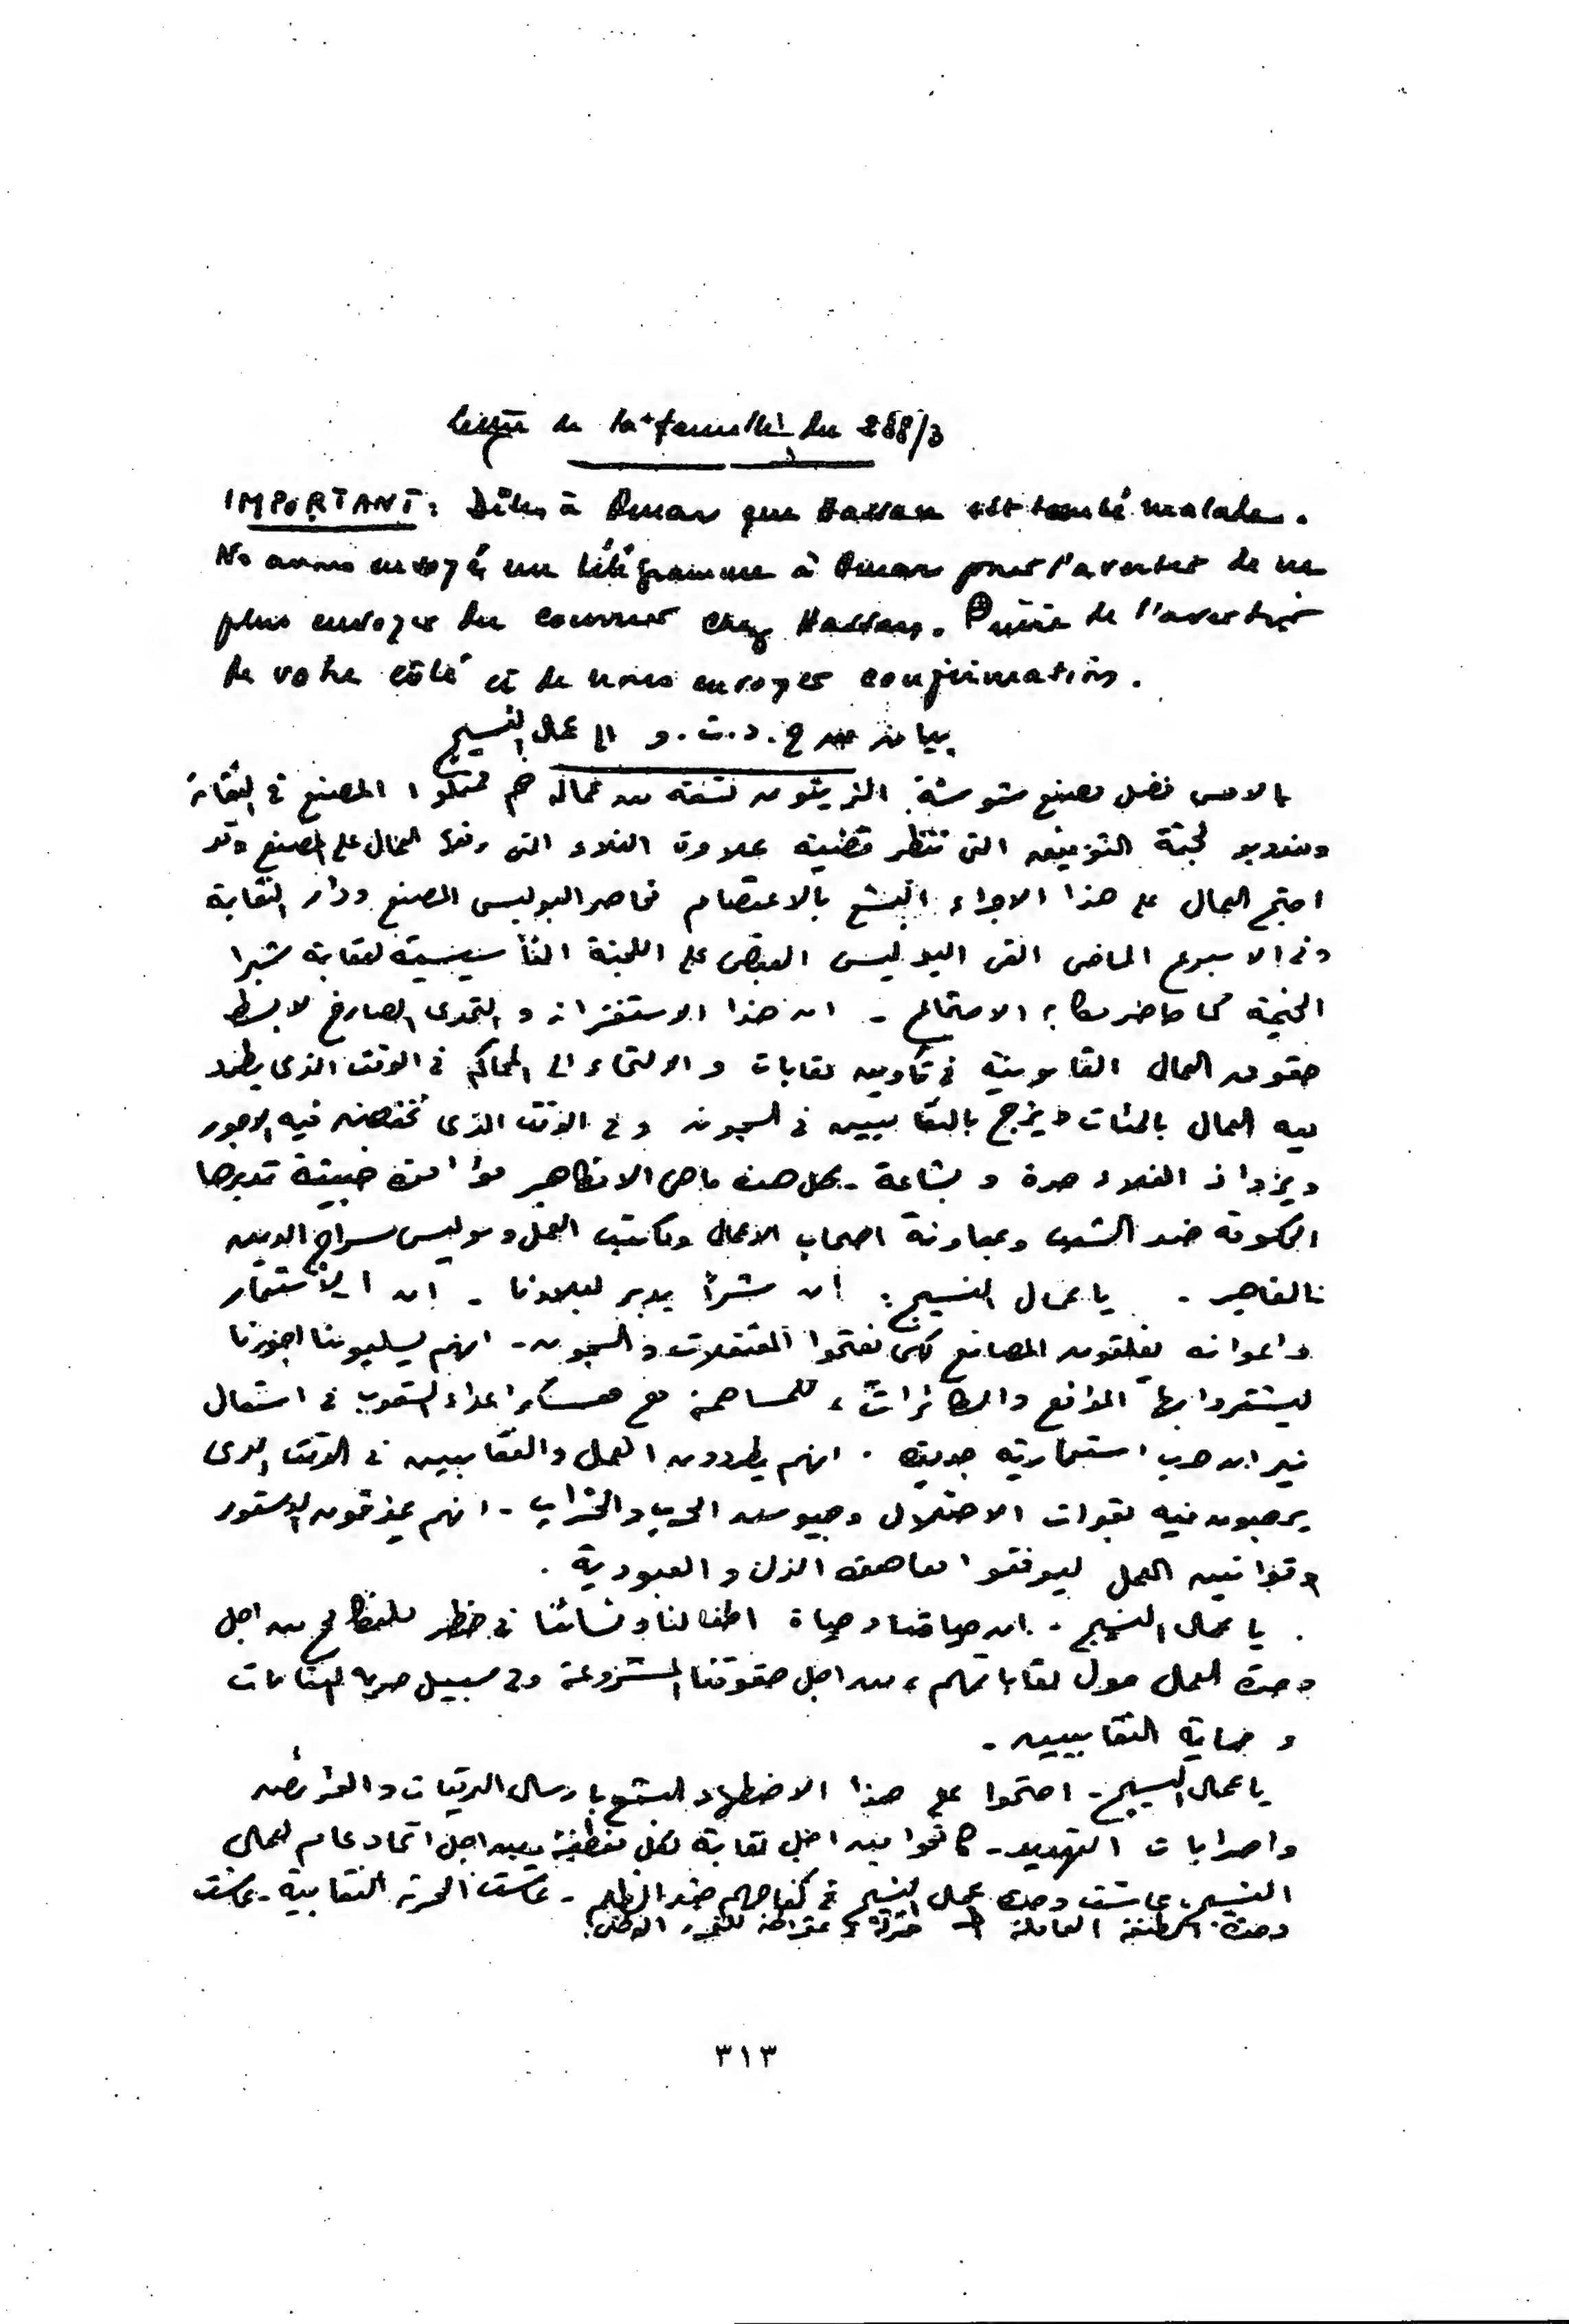 Lettre de la famille du 288/3
IMPORTANT: Dites à Omar que Hassan est tombé malade.
Ns avons envoyé un télégramme à Omar pour l'avertir de ne
plus envoyer du courrier chez Hassan. Prière de l'avertir
de votre côté et de nous envoyer confirmation.
بيان من ح. د. ت. و الى عمال النسيج
بالامس فصل مصنع الزيتون تسعه من عماله هم ممثلوا المصنع فى النقابة
ومندوبو لجنة التوفيق التى تنظر قضية علاوة الغلاء التى رفعها العمال على المصنع وقد
احتج العمال على هذا الاجراء البشع بالاعتصام فحاصر البوليس المصنع ودار النقابة
وفى الاسبوع الماضى القى البوليس القبض على اللجنة التأسيسية لنقابة شبرا
الخيمة كما حاصر مكان الاجتماع - ان هذا الاستفزاز و التحدى الصارخ لابسط
حقوق العمال القانونية فى تكوين نقابات و الالتجاء الى المحاكم فى الوقت الذى يطرد
فيه العمال بالمئات ويزج بالنقابيين فى السجون وفى الوقت الذى تخفض فيه الاجور
ويزداد الغلاء حدة و بشاعة - كل هذه ما هى الا مظاهر مؤامرة خبيثة تدبرها
الحكومة ضد الشعب وبمعاونة اصحاب الاعمال ومكاتب العمل وبوليس سراج الدين
يا عمال النسيج: ان شرا يدبر لبلادنا - ان الاستعمار
واعوانه يغلقون المصانع لكى يفتحوا المعتقلات والسجون - انهم يسلبوننا اجورنا
ليشتروا بها المدافع والطائرات، للمساهمة مع معسكر اعداء الشعوب فى اشعال
نيران حرب استعمارية جديدة. انهم يطردون العمال والنقابيين فى الوقت الذى
يرحبون فيه بقوات الاحتلال وجيوش الحرب والخراب - انهم يمزقون الدستور
وقوانين العمل ليوقعوا معاهدة الذل و العبودية.
يا عمال النسيج - ان حياتنا وحياة اطفالنا ونسائنا فى خطر فلنكافح من اجل
وحدة العمال حول نقاباتهم، من اجل حقوقنا المشروعة وفى سبيل حرية النقابات
و حماية النقابيين -
يا عمال النسيج - احتجوا على هذا الاضطهاد البشع بارسال البرقيات والعرائض
واضرابات التهديد - كافحوا من اجل نقابة لكل منطقة ومن اجل اتحاد عام لعمال
النسيج، عاشت وحدة عمال النسيج فى كفاحهم ضد الظلم - عاشت الحرية النقابية - عاشت
وحدة الطبقة العاملة
٣١٣